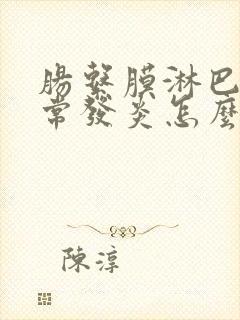 腸繫膜淋巴
常發炎怎麼
陳淳